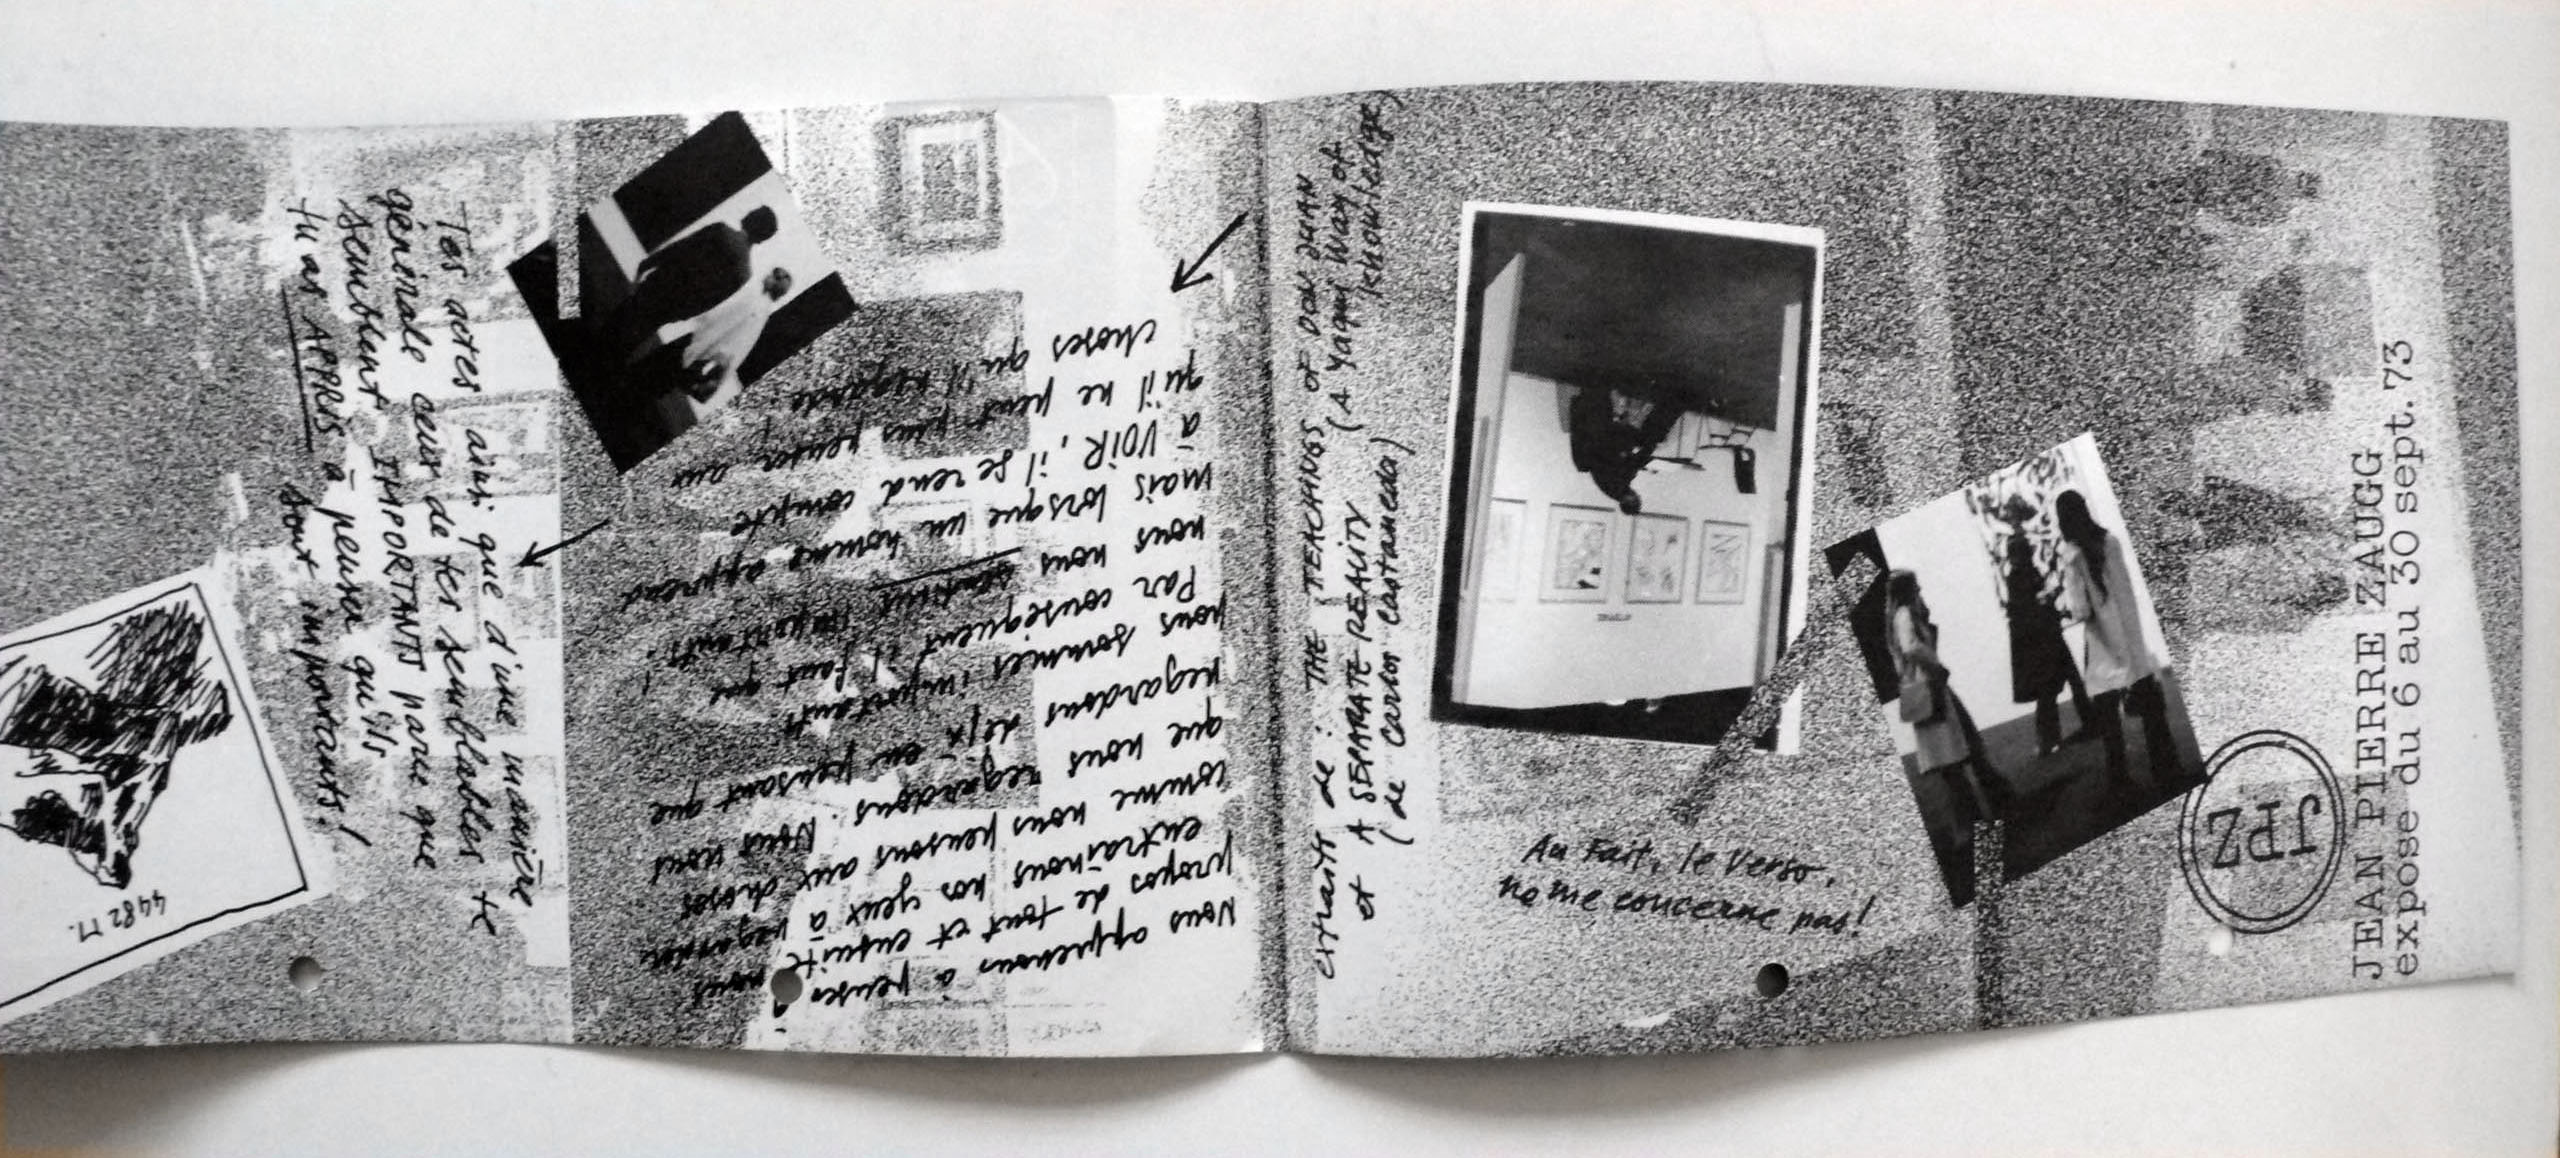 Tes actes ainsi que d'une manière
générale ceux de tes semblables te
semblent IMPORTANTS parce que
tu as APPRIS à penser qu'ils
sont importants!
4482 M.
Nous apprenons à penser à
propos de tout et ensuite nous
entraînons nos yeux à regarder
comme nous pensons aux choses
que nous regardons. Nous nous
regardons déjà en pensant que
nous sommes importants.
Par conséquent il faut que
nous nous sentions importants!
mais lorsque un homme apprend
à VOIR, il se rend compte
qu'il ne peut plus penser aux
choses qu'il regarde.
extraits de: THE TEACHINGS of DON JUAN
(A Yaqui Way of
knowledge)
et A SEPARATE REALITY
(de Carlos Castaneda)
Au Fait, le Verso,
ne me concerne pas!
JPZ
JEAN PIERRE ZAUGG
expose du 6 au 30 sept. 73